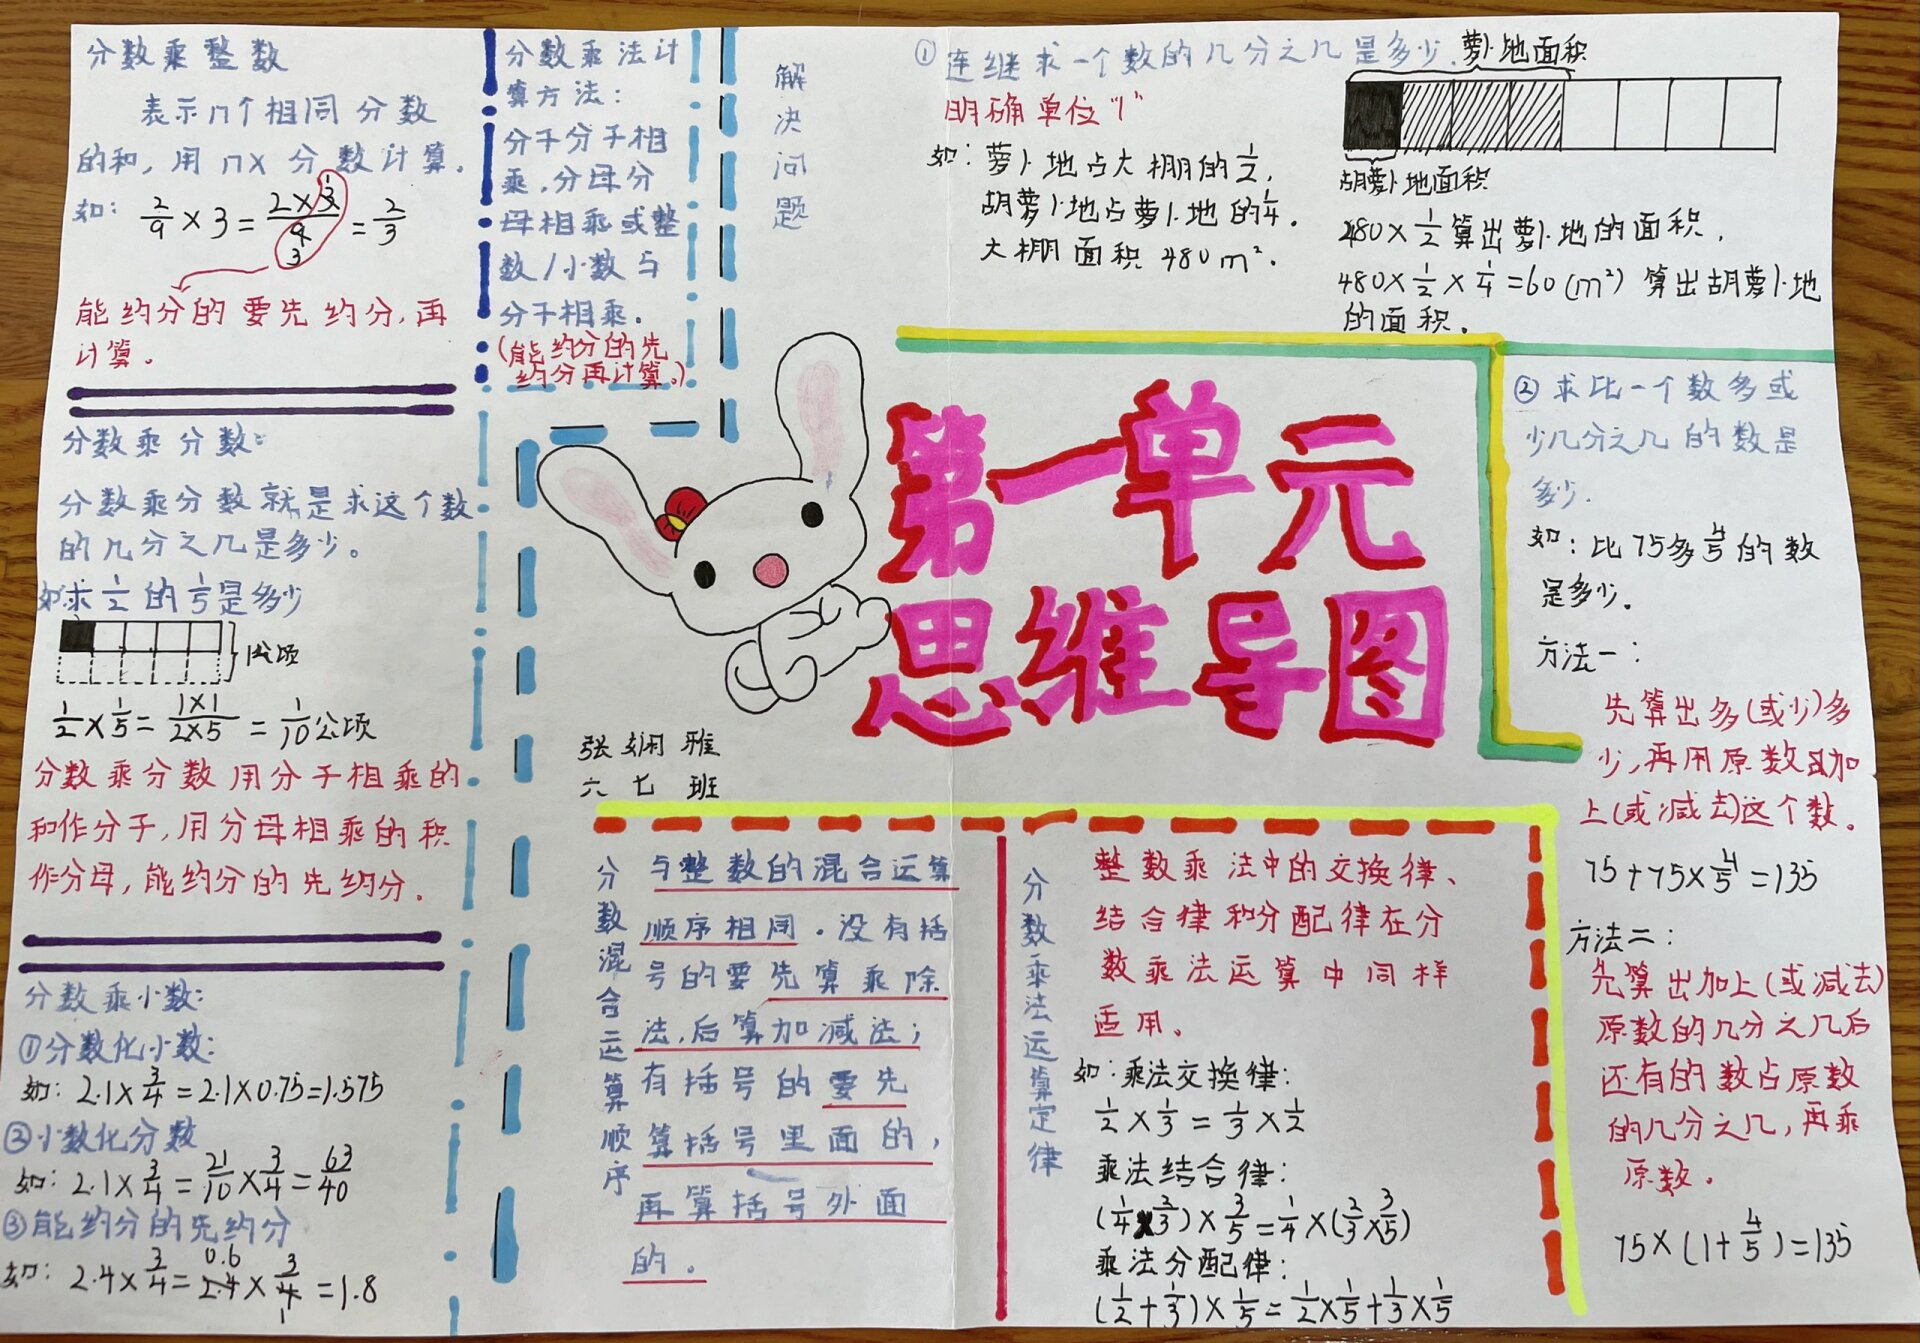 分数乘整数
表示n个相同分数
的和，用n×分数计算。
如：2/9×3=2×3/9=2/3
1
3
能约分的要先约分，再
计算。
分数乘分数：
分数乘分数就是求这个数
的几分之几是多少。
如求1/2的1/5是多少
1公顷
1/2×1/5=1×1/2×5=1/10公顷
分数乘分数用分子相乘的
和作分子，用分母相乘的积
作分母，能约分的先约分．
分数乘小数：
①分数化小数：
如：2.1×3/4=2.1×0.75=1.575
②小数化分数
如：2.1×3/4=21/10×3/4=63/40
③能约分的先约分
0.6
如：2.4×3/4=2.4×3/4=1.8
1
分数乘法计
算方法：
分子分子相
乘．分母分
母相乘或整
数/小数与
分子相乘．
(能约分的先
约分再计算。)
解决问题
①连继求一个数的几分之几是多少．
明确单位“1”
如：萝卜地占大棚的1/2，
胡萝卜地占萝卜地的1/4．
大棚面积480m²．
萝卜地面积
胡萝卜地面积
480×1/2算出萝卜地的面积．
480×1/2×1/4=60(m²) 算出胡萝卜地
的面积．
第一单元
思维导图
张娴雅
六七班
②求比一个数多或
少几分之几的数是
多少．
如：比75多4/5的数
是多少．
方法一：
先算出多(或少)多
少，再用原数加
上(或减去)这个数。
75+75×4/5=135
方法二：
先算出加上(或减去)
原数的几分之几后
还有的数占原数
的几分之几，再乘
原数．
75×(1+4/5)=135
分数混合运算顺序
与整数的混合运算
顺序相同．没有括
号的要先算乘除
法，后算加减法；
有括号的要先
算括号里面的，
再算括号外面
的。
分数乘法运算定律
整数乘法中的交换律、
结合律和分配律在分
数乘法运算中同样
适用。
如：乘法交换律：
1/2×1/3=1/3×1/2
乘法结合律：
(1/4×2/3)×3/5=1/4×(2/3×3/5)
乘法分配律：
(1/2+1/3)×1/5=1/2×1/5+1/3×1/5